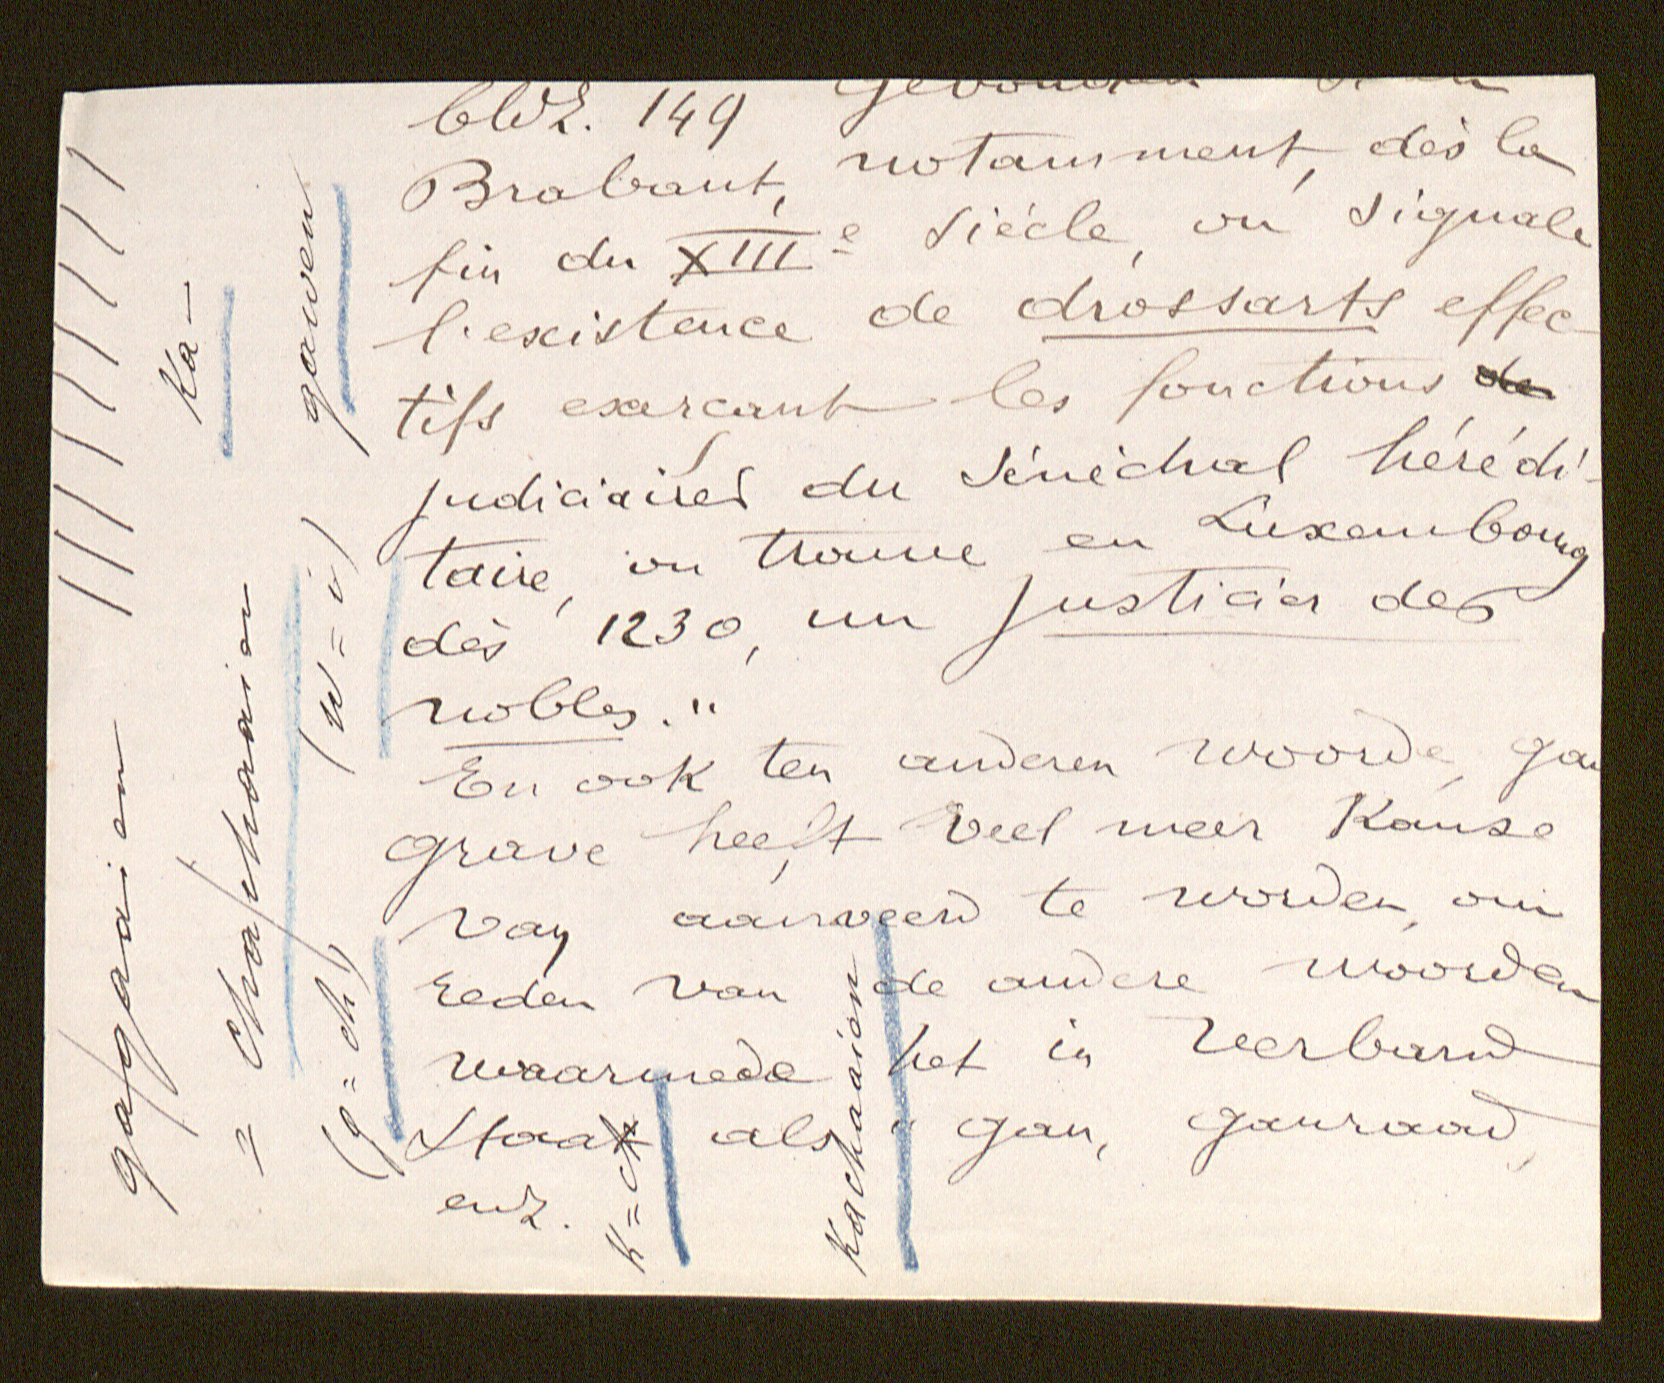 bldz. 149 gevonden
Brabant, notamment, dès la
fin du XIIIe siècle, on signale
l'existence de drossarts effec-
tifs exerçant les fonctions de
judiciaires du Sénéchal hérédi-
taire, on trouve en Luxembourg
dès 1230, un justicier des
nobles."
En ook ten anderen woorde, gau
grave heeft veel meer kanse
van aanveerd te worden, om
reden van de andere woorden
waarmede het in verband
staat als " gau, gauraad,
enz.
ga/gaaien
= cha/chaaien
Ka-
gauwen
(w=i)
(g=ch)
K=ch
Kachaaien